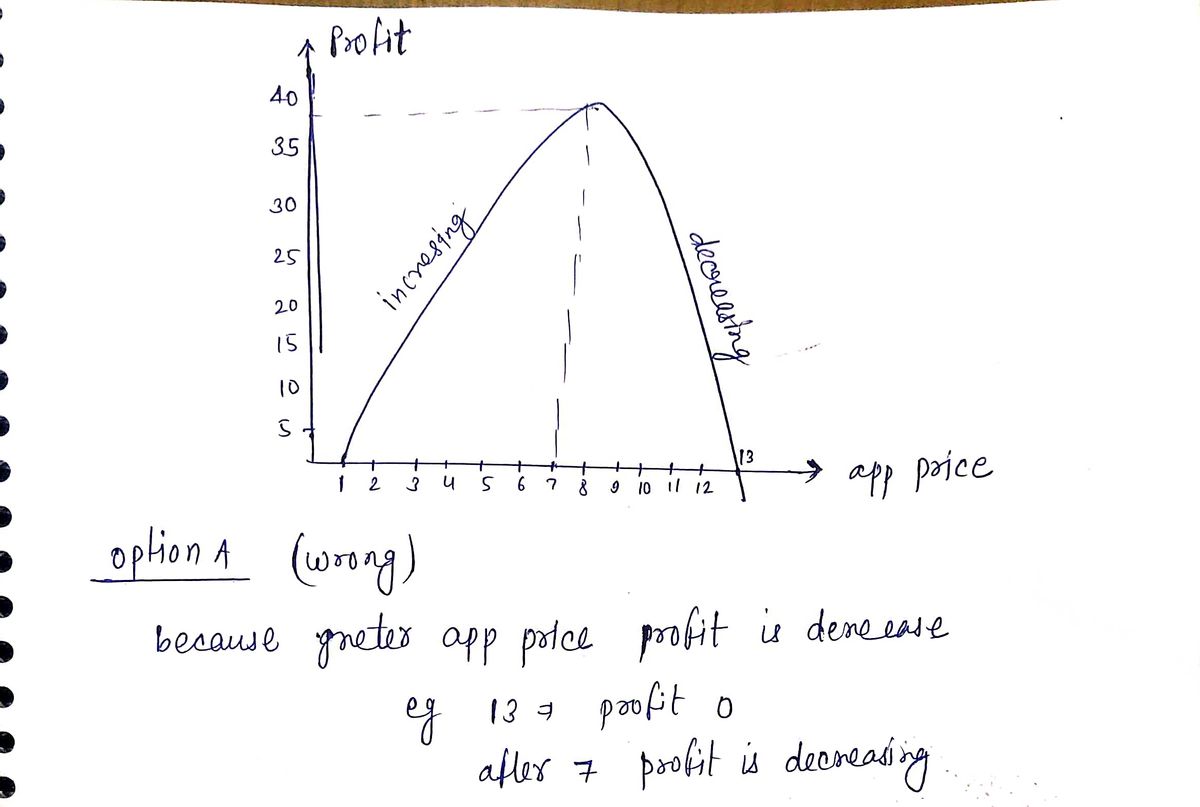 Profit
40
35
30
25
20
15
10
5
incresing
decreasing
13
1 2 3 4 5 6 7 8 9 10 11 12
app price
option A (wrong)
because greter app price profit is derecease
eg 13 ⇒ profit 0
after 7 profit is decreasing